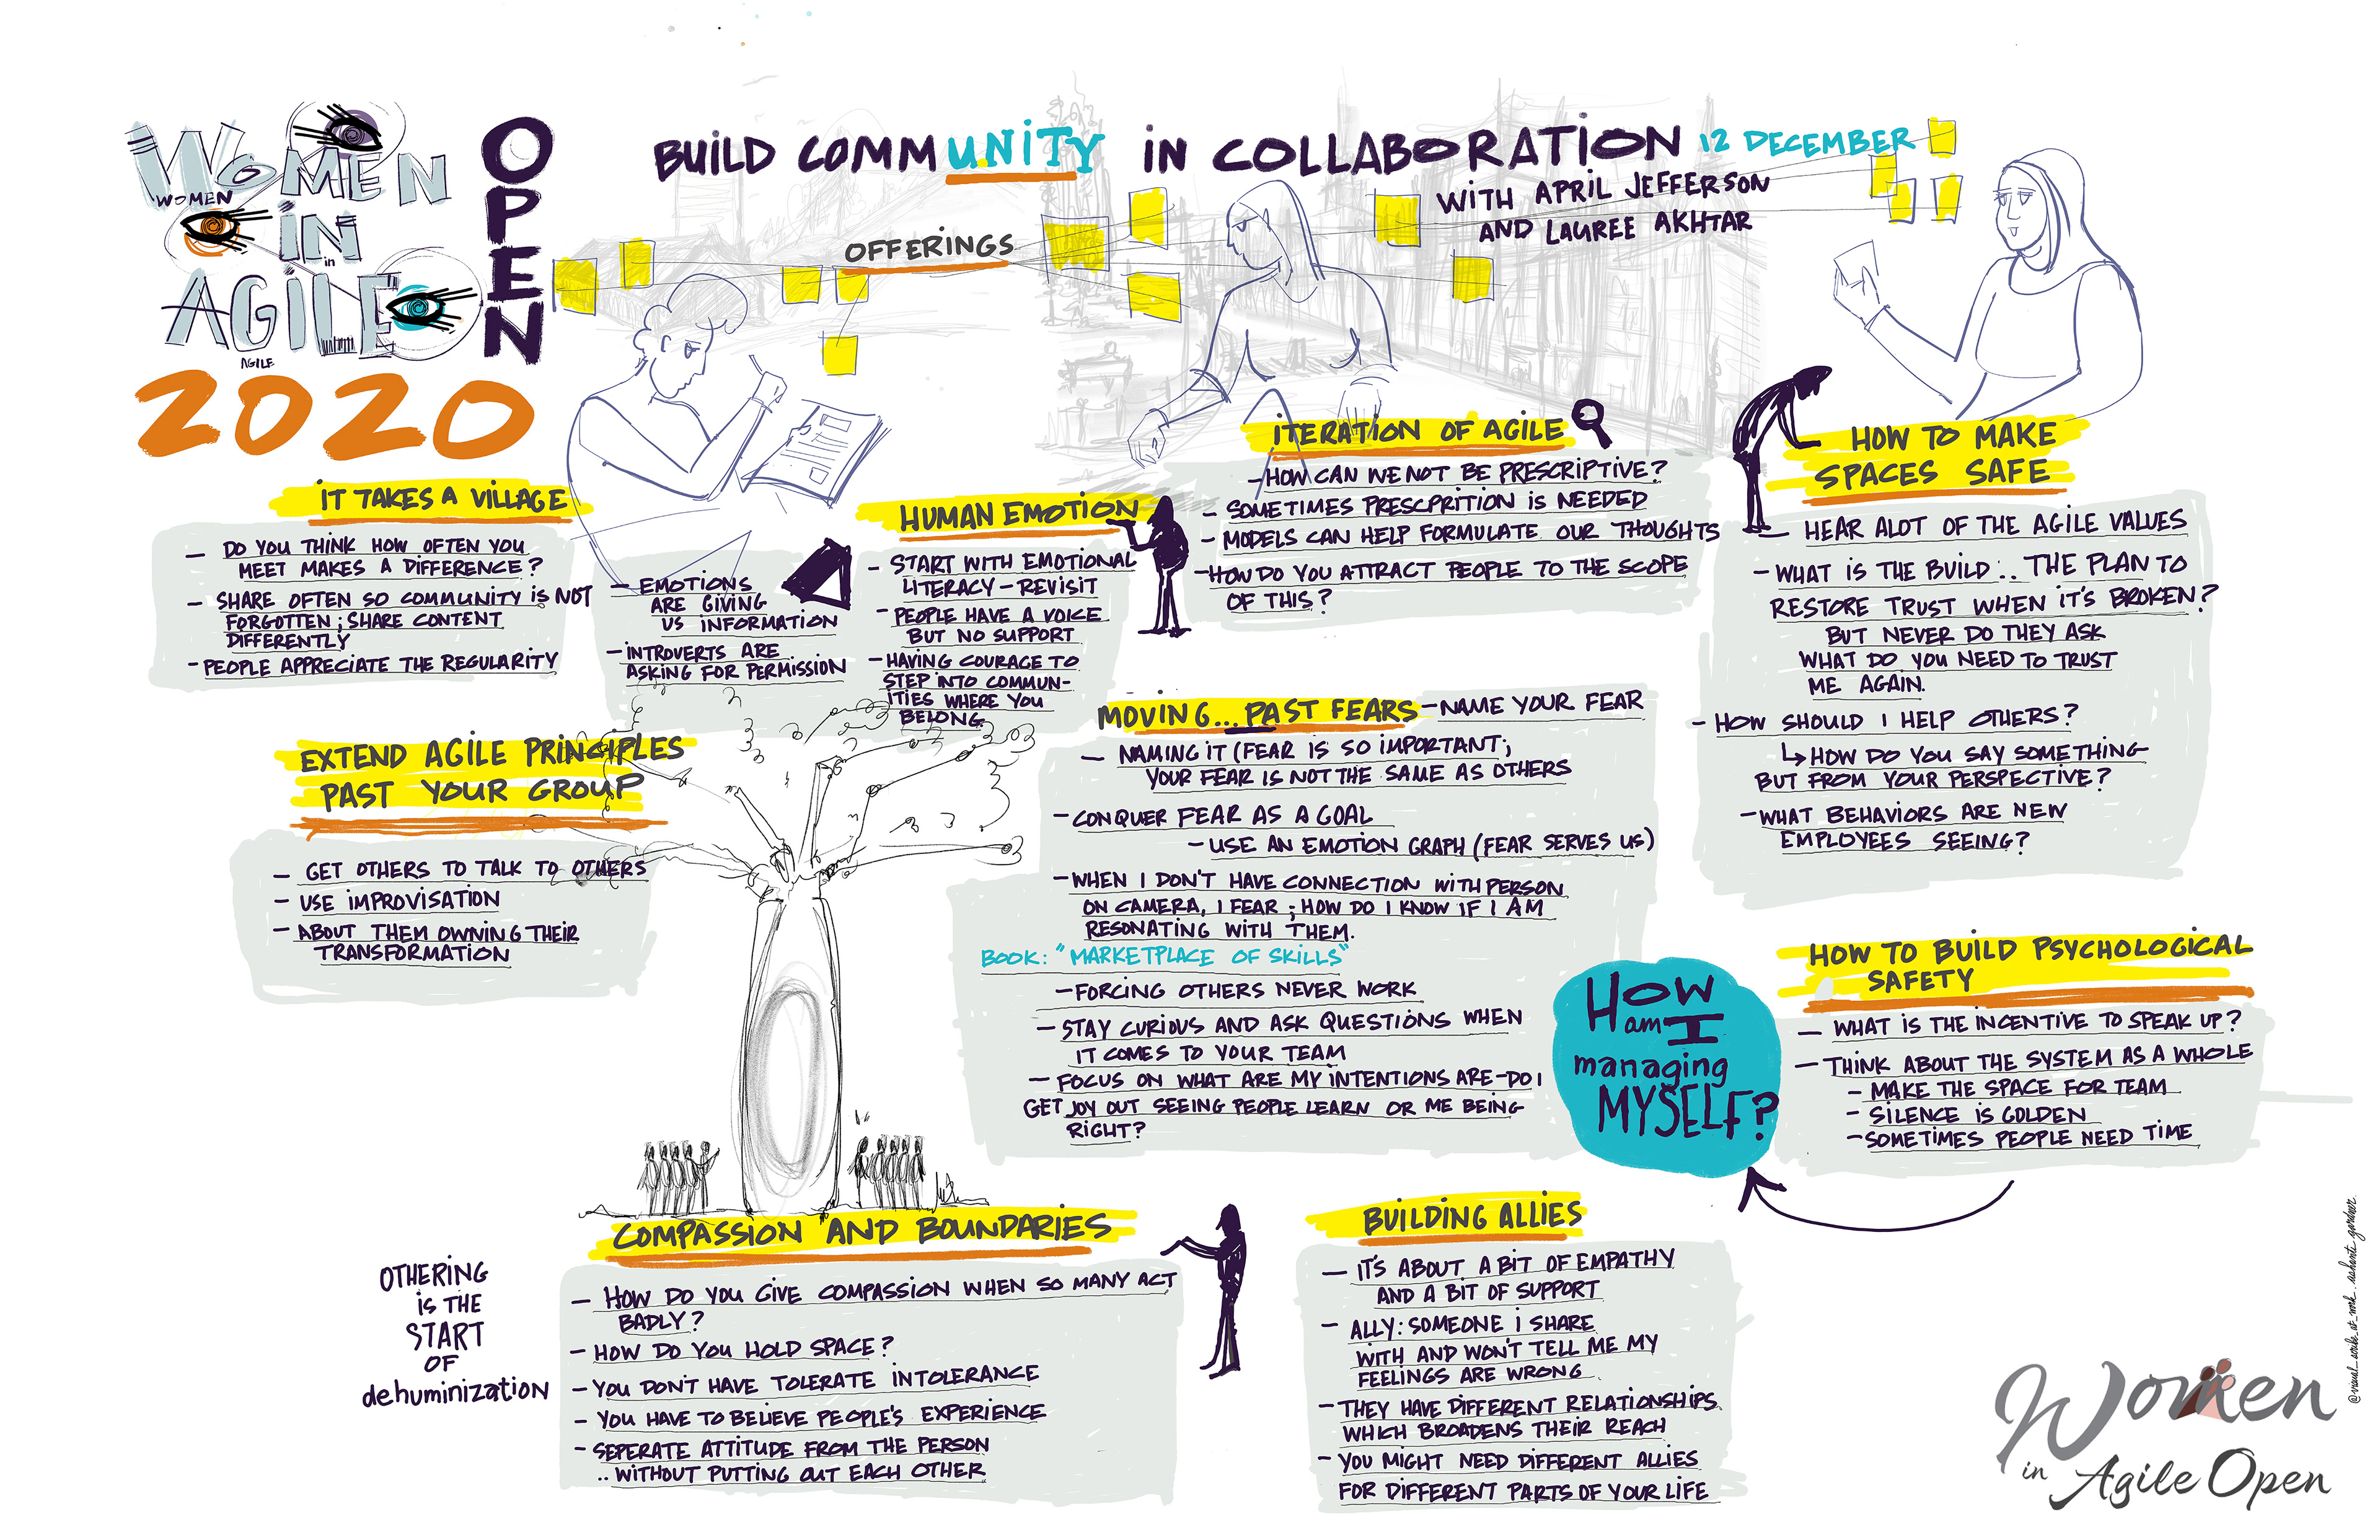 WOMEN
WOMEN
IN
in
AGILE
AGILE
OPEN
2020
BUILD COMMUNITY IN COLLABORATION 12 DECEMBER
WITH APRIL JEFFERSON
AND LAUREE AKHTAR
OFFERINGS
IT TAKES A VILLAGE
- DO YOU THINK HOW OFTEN YOU
MEET MAKES A DIFFERENCE?
- SHARE OFTEN SO COMMUNITY IS NOT
FORGOTTEN; SHARE CONTENT
DIFFERENTLY
- PEOPLE APPRECIATE THE REGULARITY
- EMOTIONS
ARE GIVING
US INFORMATION
- INTROVERTS ARE
ASKING FOR PERMISSION
HUMAN EMOTION
- START WITH EMOTIONAL
LITERACY - REVISIT
- PEOPLE HAVE A VOICE
BUT NO SUPPORT
- HAVING COURAGE TO
STEP INTO COMMUN-
ITIES WHERE YOU
BELONG
ITERATION OF AGILE
- HOW CAN WE NOT BE PRESCRIPTIVE?
- SOMETIMES PRESCPRITION IS NEEDED
- MODELS CAN HELP FORMULATE OUR THOUGHTS
- HOW DO YOU ATTRACT PEOPLE TO THE SCOPE
OF THIS?
HOW TO MAKE
SPACES SAFE
- HEAR ALOT OF THE AGILE VALUES
- WHAT IS THE BUILD... THE PLAN TO
RESTORE TRUST WHEN IT'S BROKEN?
BUT NEVER DO THEY ASK
WHAT DO YOU NEED TO TRUST
ME AGAIN.
- HOW SHOULD I HELP OTHERS?
↳ HOW DO YOU SAY SOMETHING
BUT FROM YOUR PERSPECTIVE?
- WHAT BEHAVIORS ARE NEW
EMPLOYEES SEEING?
EXTEND AGILE PRINCIPLES
PAST YOUR GROUP
- GET OTHERS TO TALK TO OTHERS
- USE IMPROVISATION
- ABOUT THEM OWNING THEIR
TRANSFORMATION
MOVING... PAST FEARS - NAME YOUR FEAR
- NAMING IT (FEAR IS SO IMPORTANT;
YOUR FEAR IS NOT THE SAME AS OTHERS
- CONQUER FEAR AS A GOAL
- USE AN EMOTION GRAPH (FEAR SERVES US)
- WHEN I DON'T HAVE CONNECTION WITH PERSON
ON CAMERA, I FEAR; HOW DO I KNOW IF I AM
RESONATING WITH THEM.
BOOK: "MARKETPLACE OF SKILLS"
- FORCING OTHERS NEVER WORK
- STAY CURIOUS AND ASK QUESTIONS WHEN
IT COMES TO YOUR TEAM
- FOCUS ON WHAT ARE MY INTENTIONS ARE - DO I
GET JOY OUT SEEING PEOPLE LEARN OR ME BEING
RIGHT?
HOW
am I
managing
MYSELF?
HOW TO BUILD PSYCHOLOGICAL
SAFETY
- WHAT IS THE INCENTIVE TO SPEAK UP?
- THINK ABOUT THE SYSTEM AS A WHOLE
- MAKE THE SPACE FOR TEAM
- SILENCE IS GOLDEN
- SOMETIMES PEOPLE NEED TIME
OTHERING
IS THE
START
OF
dehuminization
COMPASSION AND BOUNDARIES
- HOW DO YOU GIVE COMPASSION WHEN SO MANY ACT
BADLY?
- HOW DO YOU HOLD SPACE?
- YOU DON'T HAVE TOLERATE INTOLERANCE
- YOU HAVE TO BELIEVE PEOPLE'S EXPERIENCE
- SEPERATE ATTITUDE FROM THE PERSON
.. WITHOUT PUTTING OUT EACH OTHER
BUILDING ALLIES
- IT'S ABOUT A BIT OF EMPATHY
AND A BIT OF SUPPORT
- ALLY: SOMEONE I SHARE
WITH AND WON'T TELL ME MY
FEELINGS ARE WRONG
- THEY HAVE DIFFERENT RELATIONSHIPS
WHICH BROADENS THEIR REACH
- YOU MIGHT NEED DIFFERENT ALLIES
FOR DIFFERENT PARTS OF YOUR LIFE
Women
in Agile Open